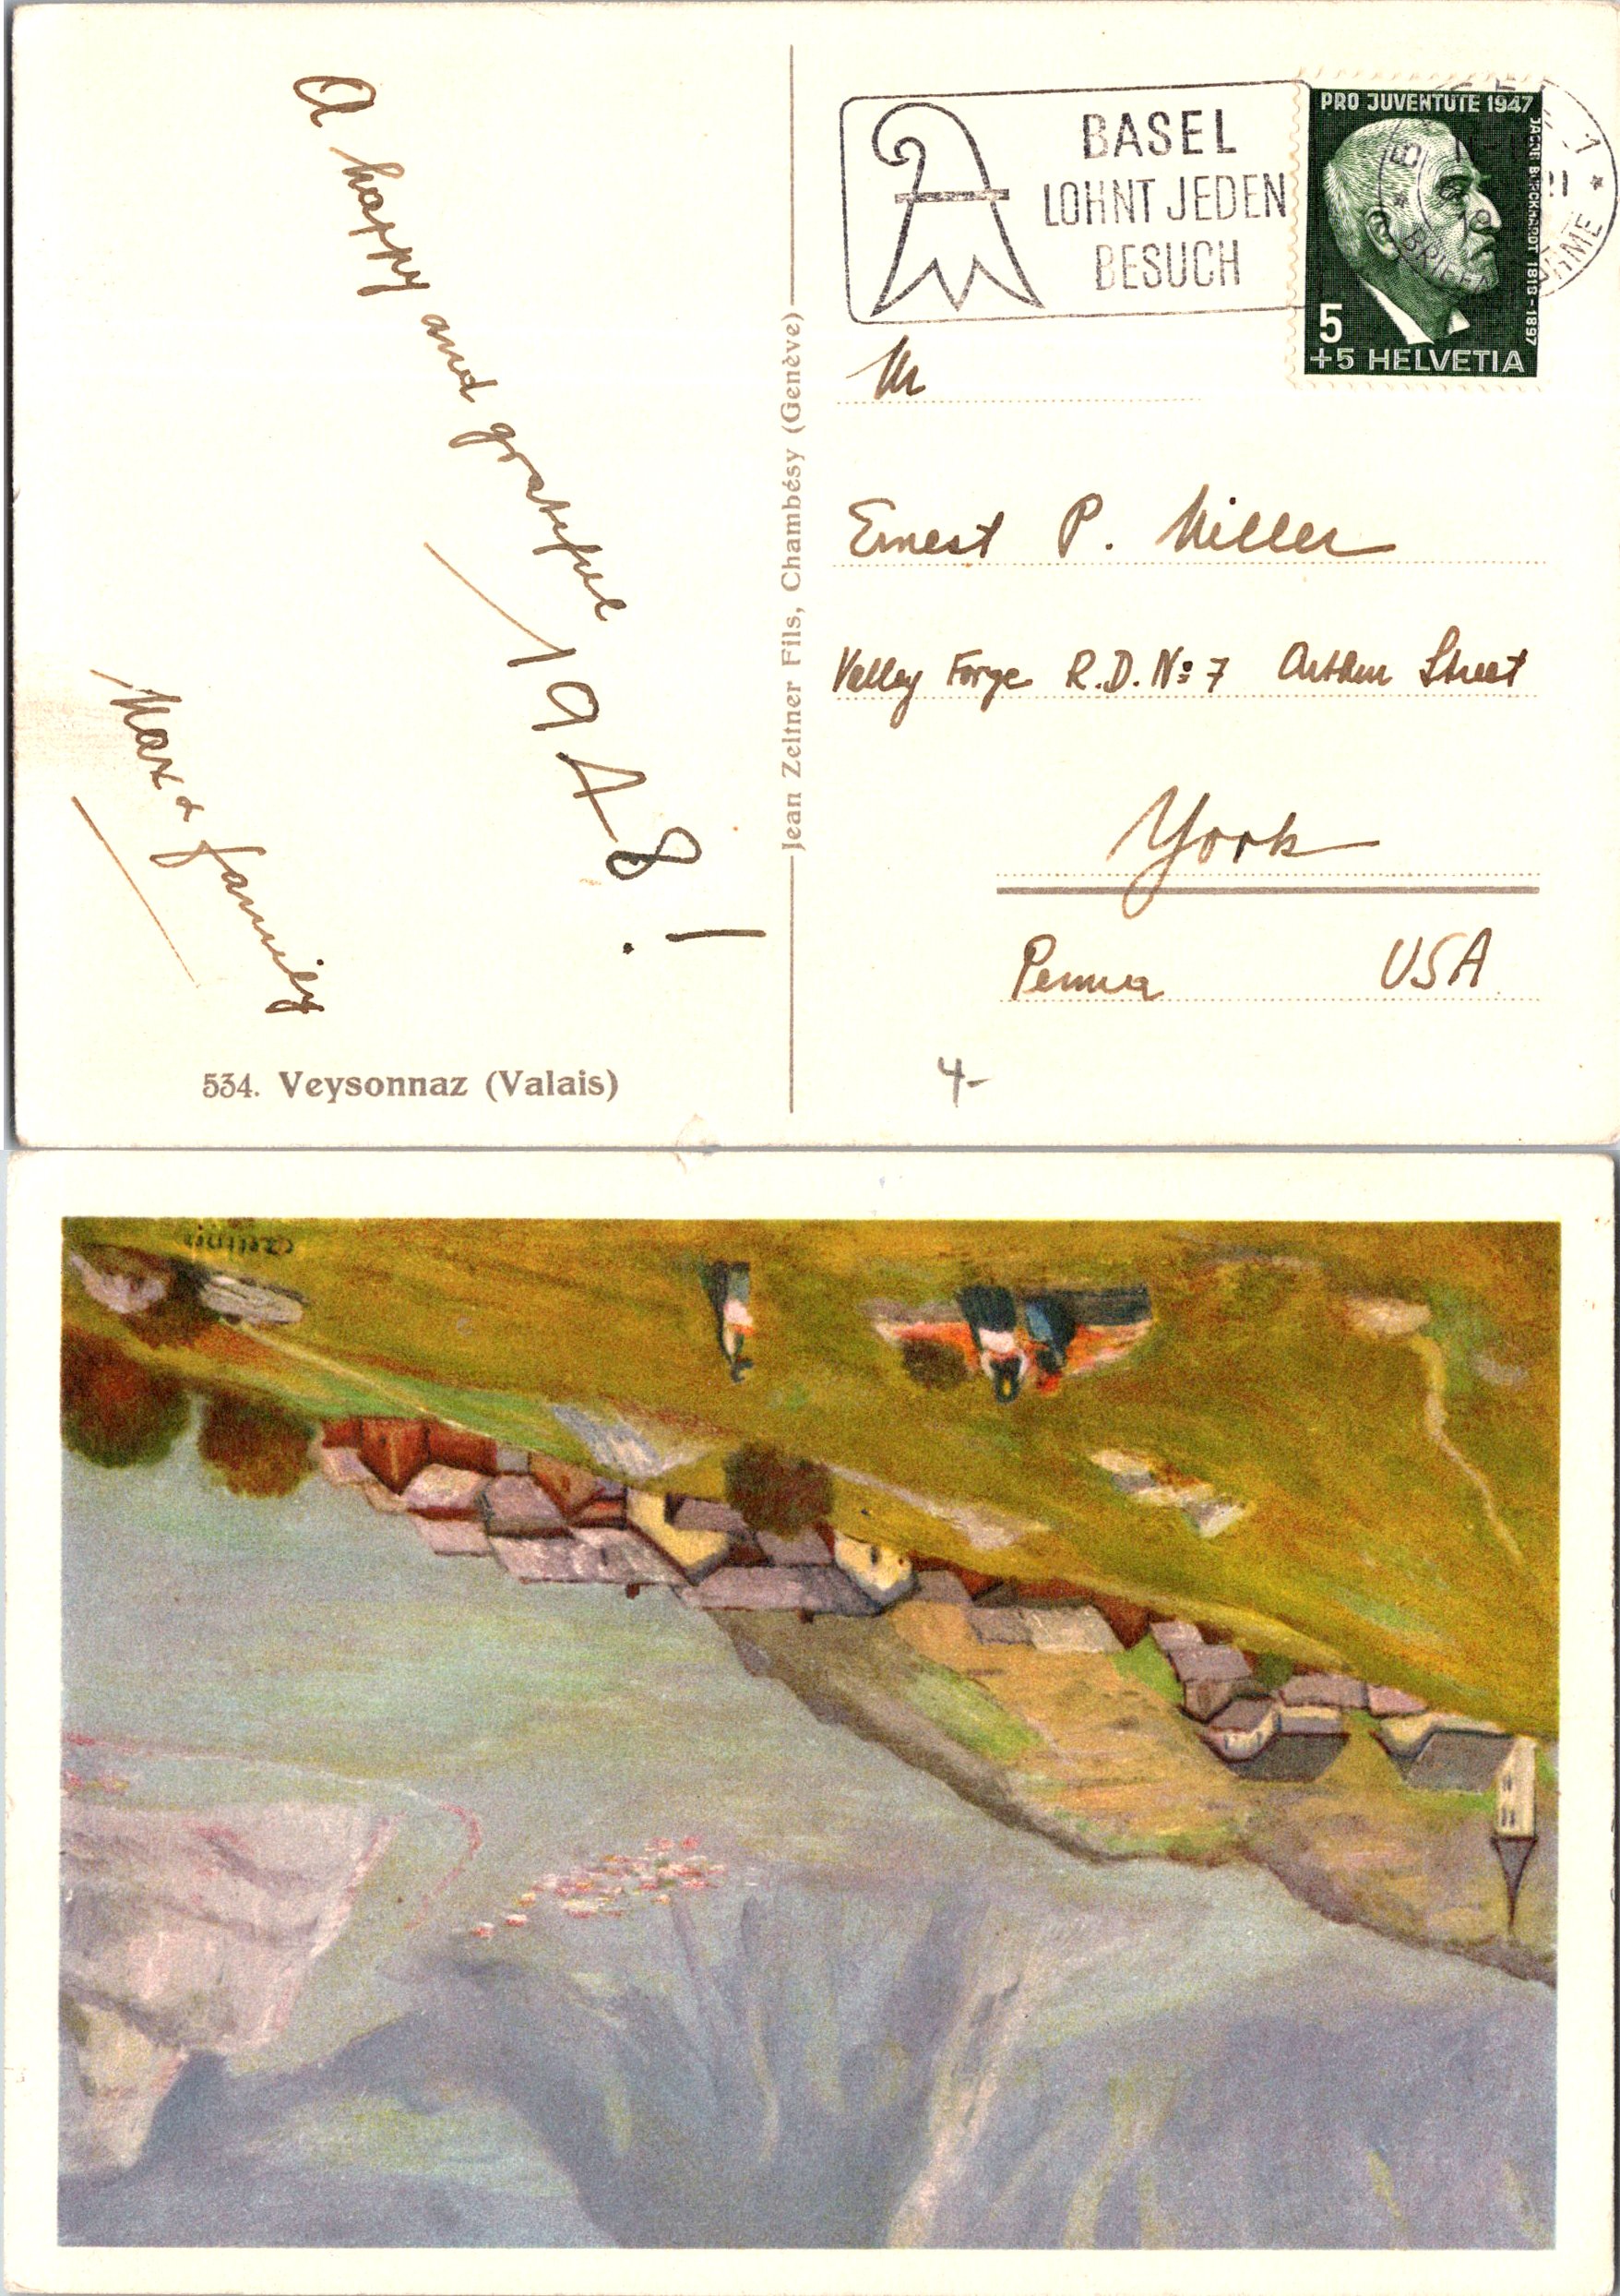 A happy and grateful
1948!
Max & family
534. Veysonnaz (Valais)
Jean Zeltner Fils, Chambésy (Genève)
BASEL
LOHNT JEDEN
BESUCH
PRO JUVENTUTE 1947
JACOB BURCKHARDT 1818-1897
5
+5 HELVETIA
Mr
Ernest P. Miller
Valley Forge R.D. No: 7 Arthur Street
York
Penna USA
4-
CZeltner